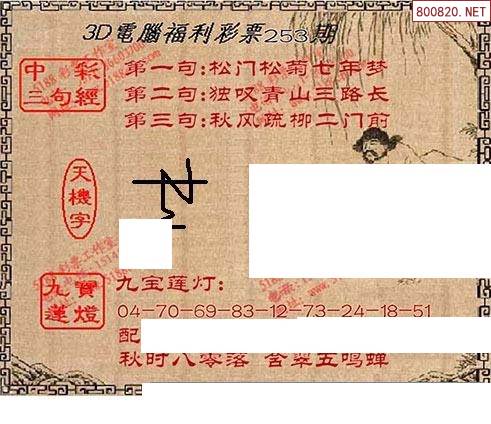 800820.NET
3D電腦福利彩票253期
中彩
三句經
第一句:松门松菊七年梦
第二句:独叹青山三路长
第三句:秋风疏柳二门前
天機字
九寶
蓮燈
九宝莲灯:
04-70-69-83-12-73-24-18-51
配
秋时八零落 含翠五鸣蝉